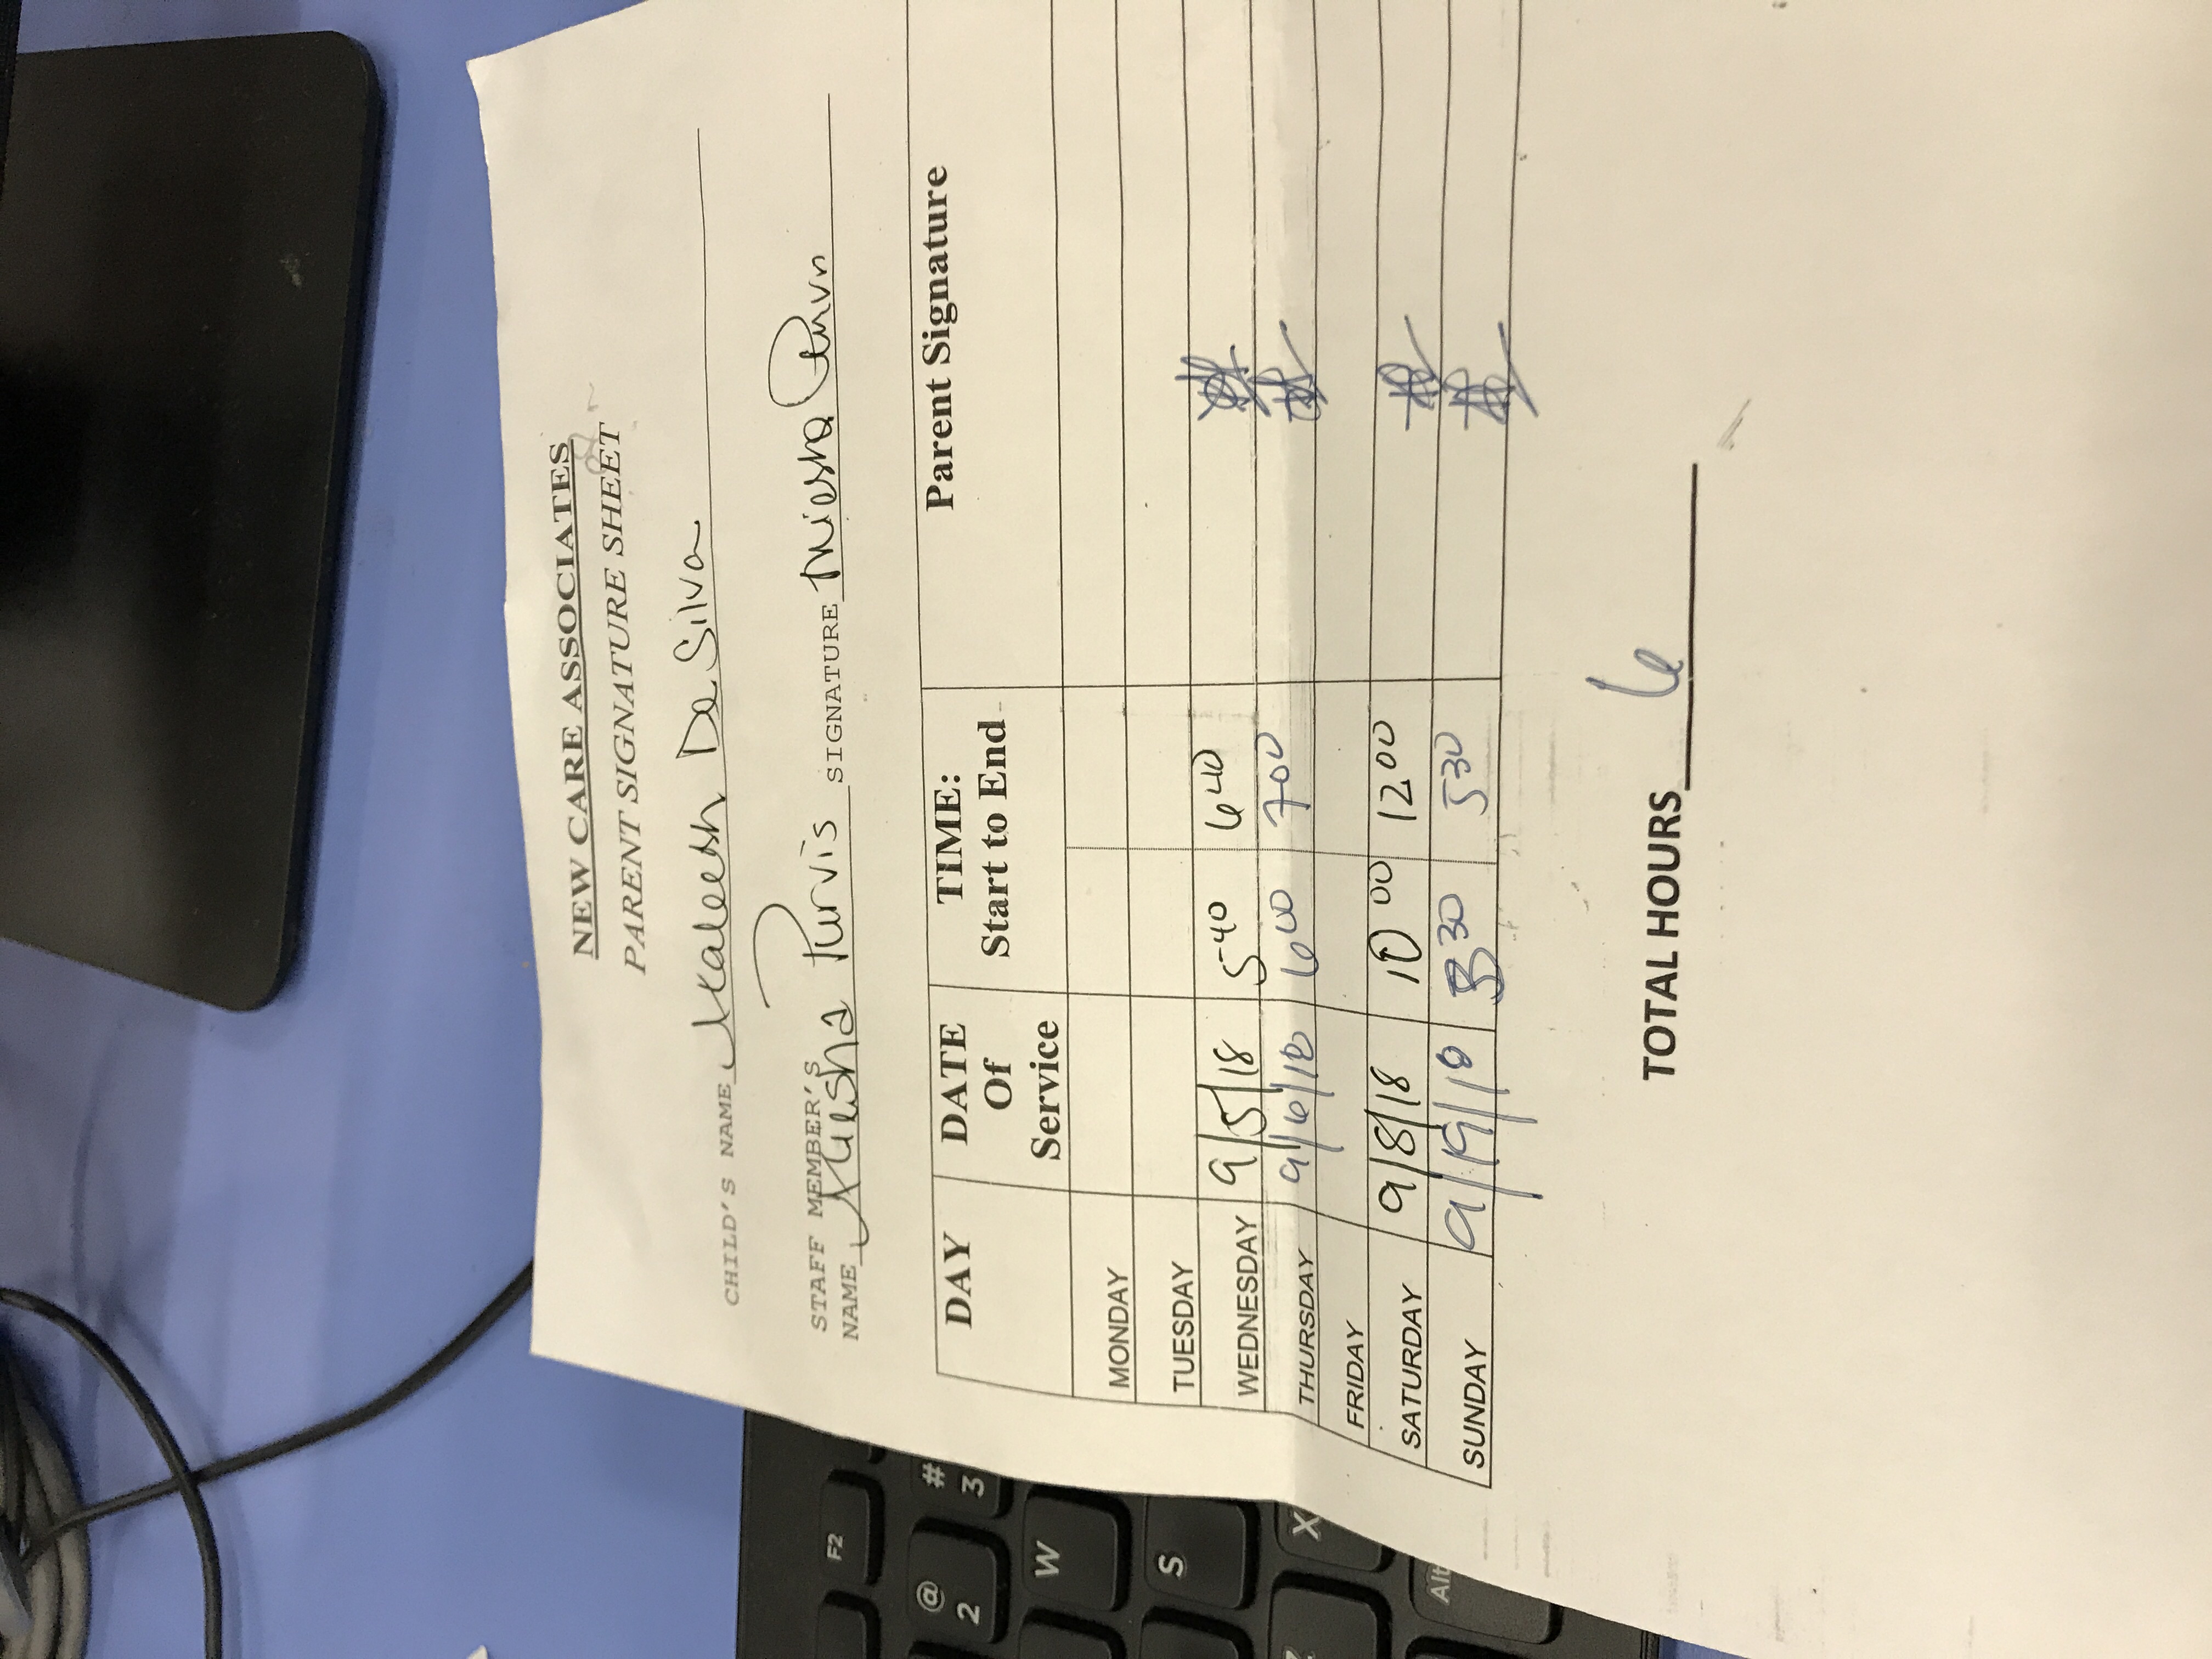 NEW CARE ASSOCIATES
PARENT SIGNATURE SHEET
CHILD'S NAME Maleesh De Silva
STAFF MEMBER'S
NAME Miesha Purvis SIGNATURE Miesha Purvis
DAY DATE Of Service TIME: Start to End Parent Signature
MONDAY
TUESDAY
WEDNESDAY 9/5/18 5 40 6 40
THURSDAY 9/6/18 6 00 7 00
FRIDAY
SATURDAY 9/8/18 10 00 12 00
SUNDAY 9/19/18 3 30 5 30
TOTAL HOURS 6
F2
@
2
#
3
W
S
Z
X
Alt